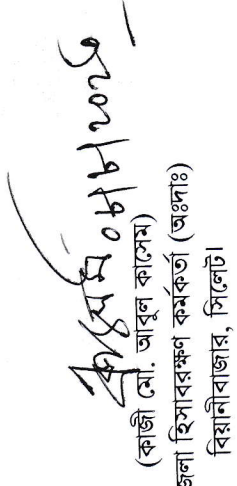 ০৮/৮/২০২৪
(কাজী মো. আবুল কাসেম)
জেলা হিসাবরক্ষণ কর্মকর্তা (অঃদাঃ)
বিয়ানীবাজার, সিলেট।